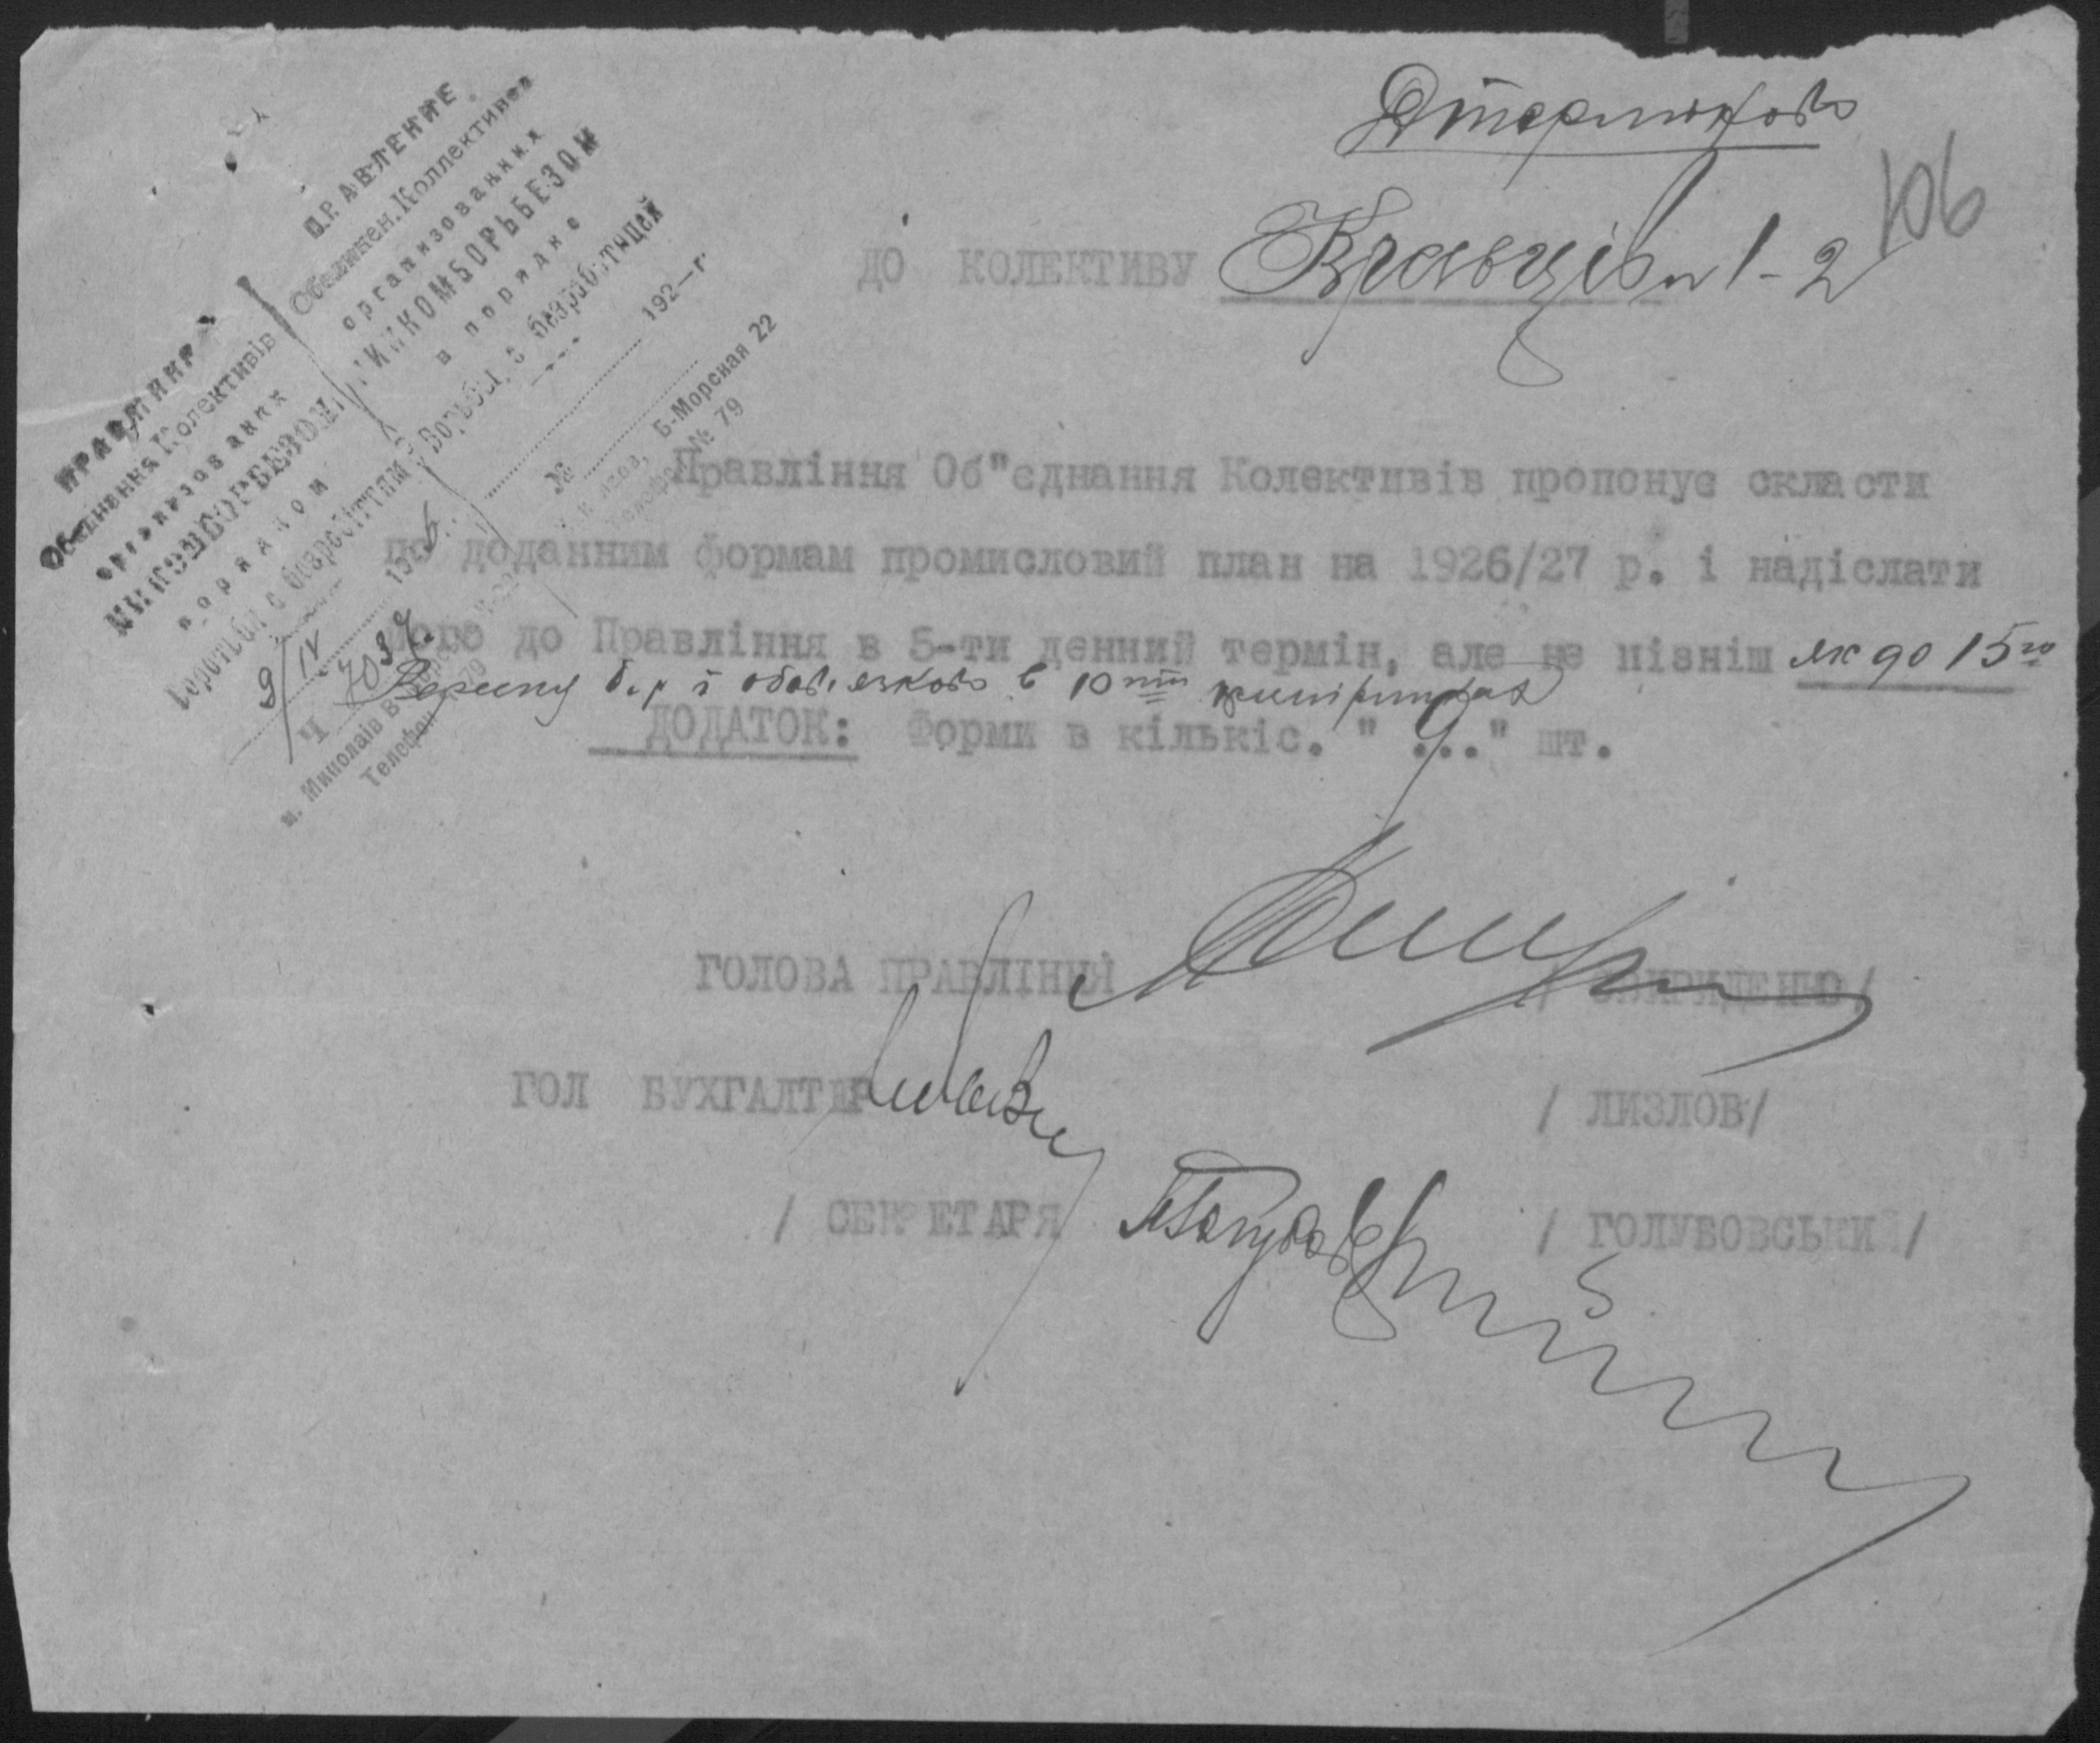 106
ПРАВЛІННЯ
Обєднання Колективів
організованих
МИКОМБОРБЕЗОМ
порядком
Боротьби с безробіттям
9/IV 1926
Ч 7037
м. Миколаїв
Телефон № 79
ПРАВЛЕНИЕ
Объединен. Коллективов
организованных
НИККОМБОРЬБЕЗОМ
в порядке
Борьбы с безработицей
192—г.
№
Б-Морская 22
Телефон № 79
ДО КОЛЕКТИВУ Кравців 1-2
Правління Об"єднання Колективів пропонує скласти
по доданним формам промисловий план на 1926/27 р. і надіслати
його до Правління в 5-ти денний термін, але не пізніш як до 15го
Вересня б.р і обов'язково в 10ти примірниках
ДОДАТОК: Форми в кількіс. " 9..." шт.
ГОЛОВА ПРАВЛІННЯ / СВИРИДЕНКО/
ГОЛ БУХГАЛТЕР / ЛИЗЛОВ/
/ СЕКРЕТАРЯ / ГОЛУБОВСЬКИЙ/